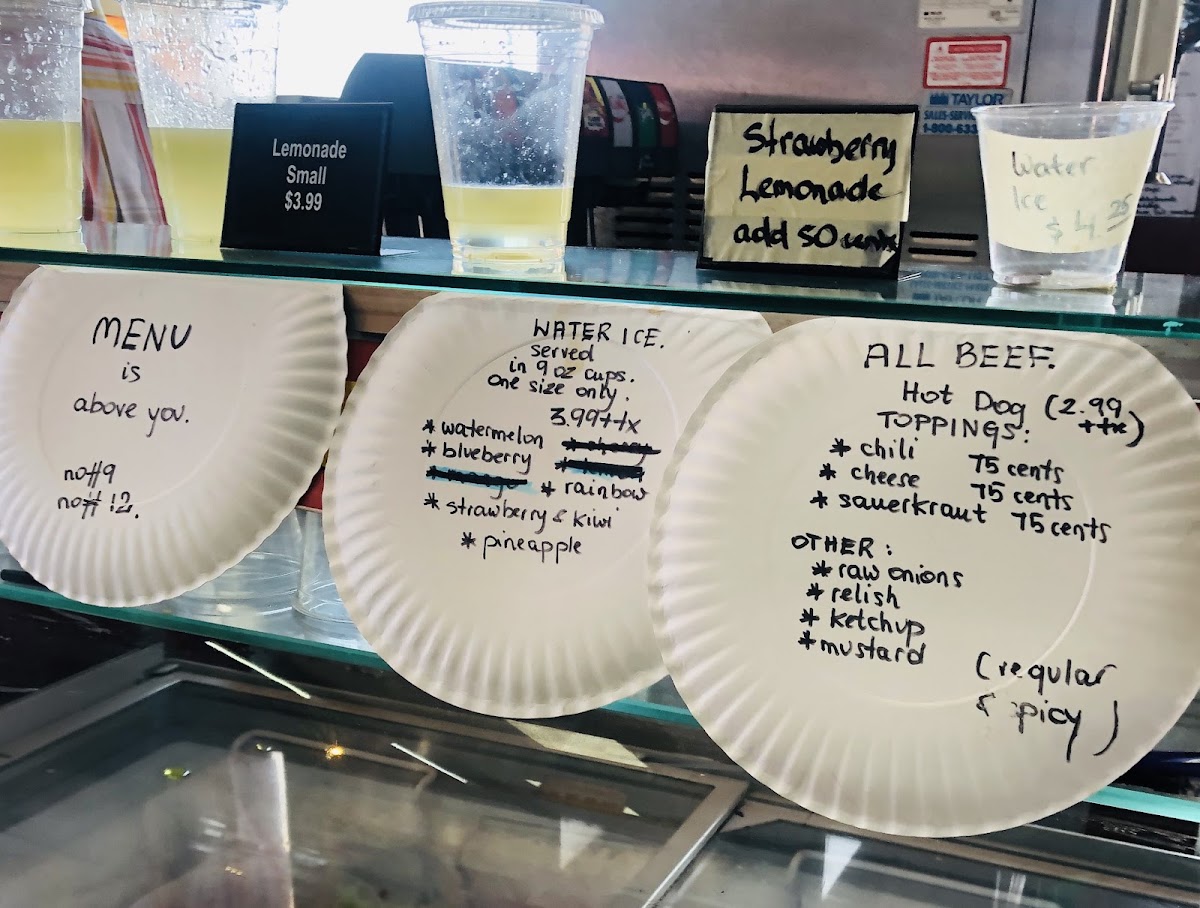 Lemonade
Small
$3.99
Strawberry
Lemonade
add 50 cents
TAYLOR
SALES-SERVICE
1-800-633
Water
Ice
$4.25
MENU
is
above you.
no#9
no#12.
WATER ICE.
served
in 9 oz cups.
one size only.
3.99+tx
* watermelon
* blueberry
* rainbow
* strawberry & kiwi
* pineapple
ALL BEEF.
Hot Dog (2.99
+tx)
TOPPINGS:
* chili 75 cents
* cheese 75 cents
* sauerkraut 75 cents
OTHER:
* raw onions
* relish
* ketchup
* mustard
(regular
& spicy)